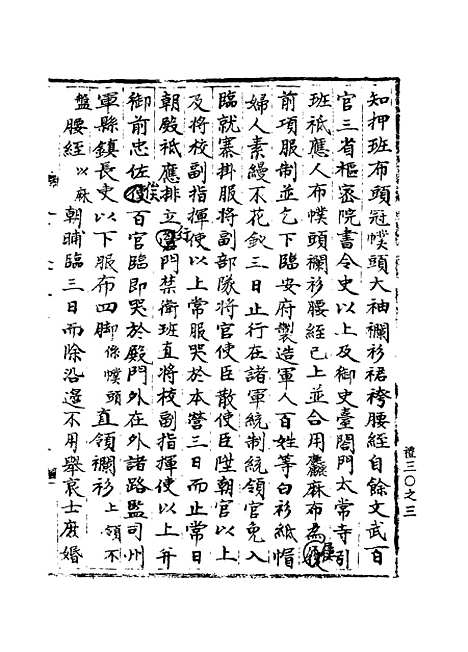 知押班布頭冠幞頭大袖襴衫裙袴腰絰自餘文武百
官三省樞密院書令史以上及御史臺閤門太常寺引
班祗應人布幞頭襴衫腰絰已上並合用麤麻布為
前項服制並乞下臨安府製造軍人百姓等白衫紙帽
婦人素縵不花釵三日止行在諸軍統制統領官免入
臨就寨掛服將副部隊將官使臣散使臣陞朝官以上
及將校副指揮使以上常服哭於本營三日而止常日
朝殿祗應排立行門禁衛班直將校副指揮使以上并
御前忠佐候百官臨即哭於殿門外在外諸路監司州
軍縣鎮長吏以下服布四脚係幞頭直領襴衫上領不
盤腰絰以麻朝晡臨三日而除沿邊不用舉哀士庶婚
禮三〇之三